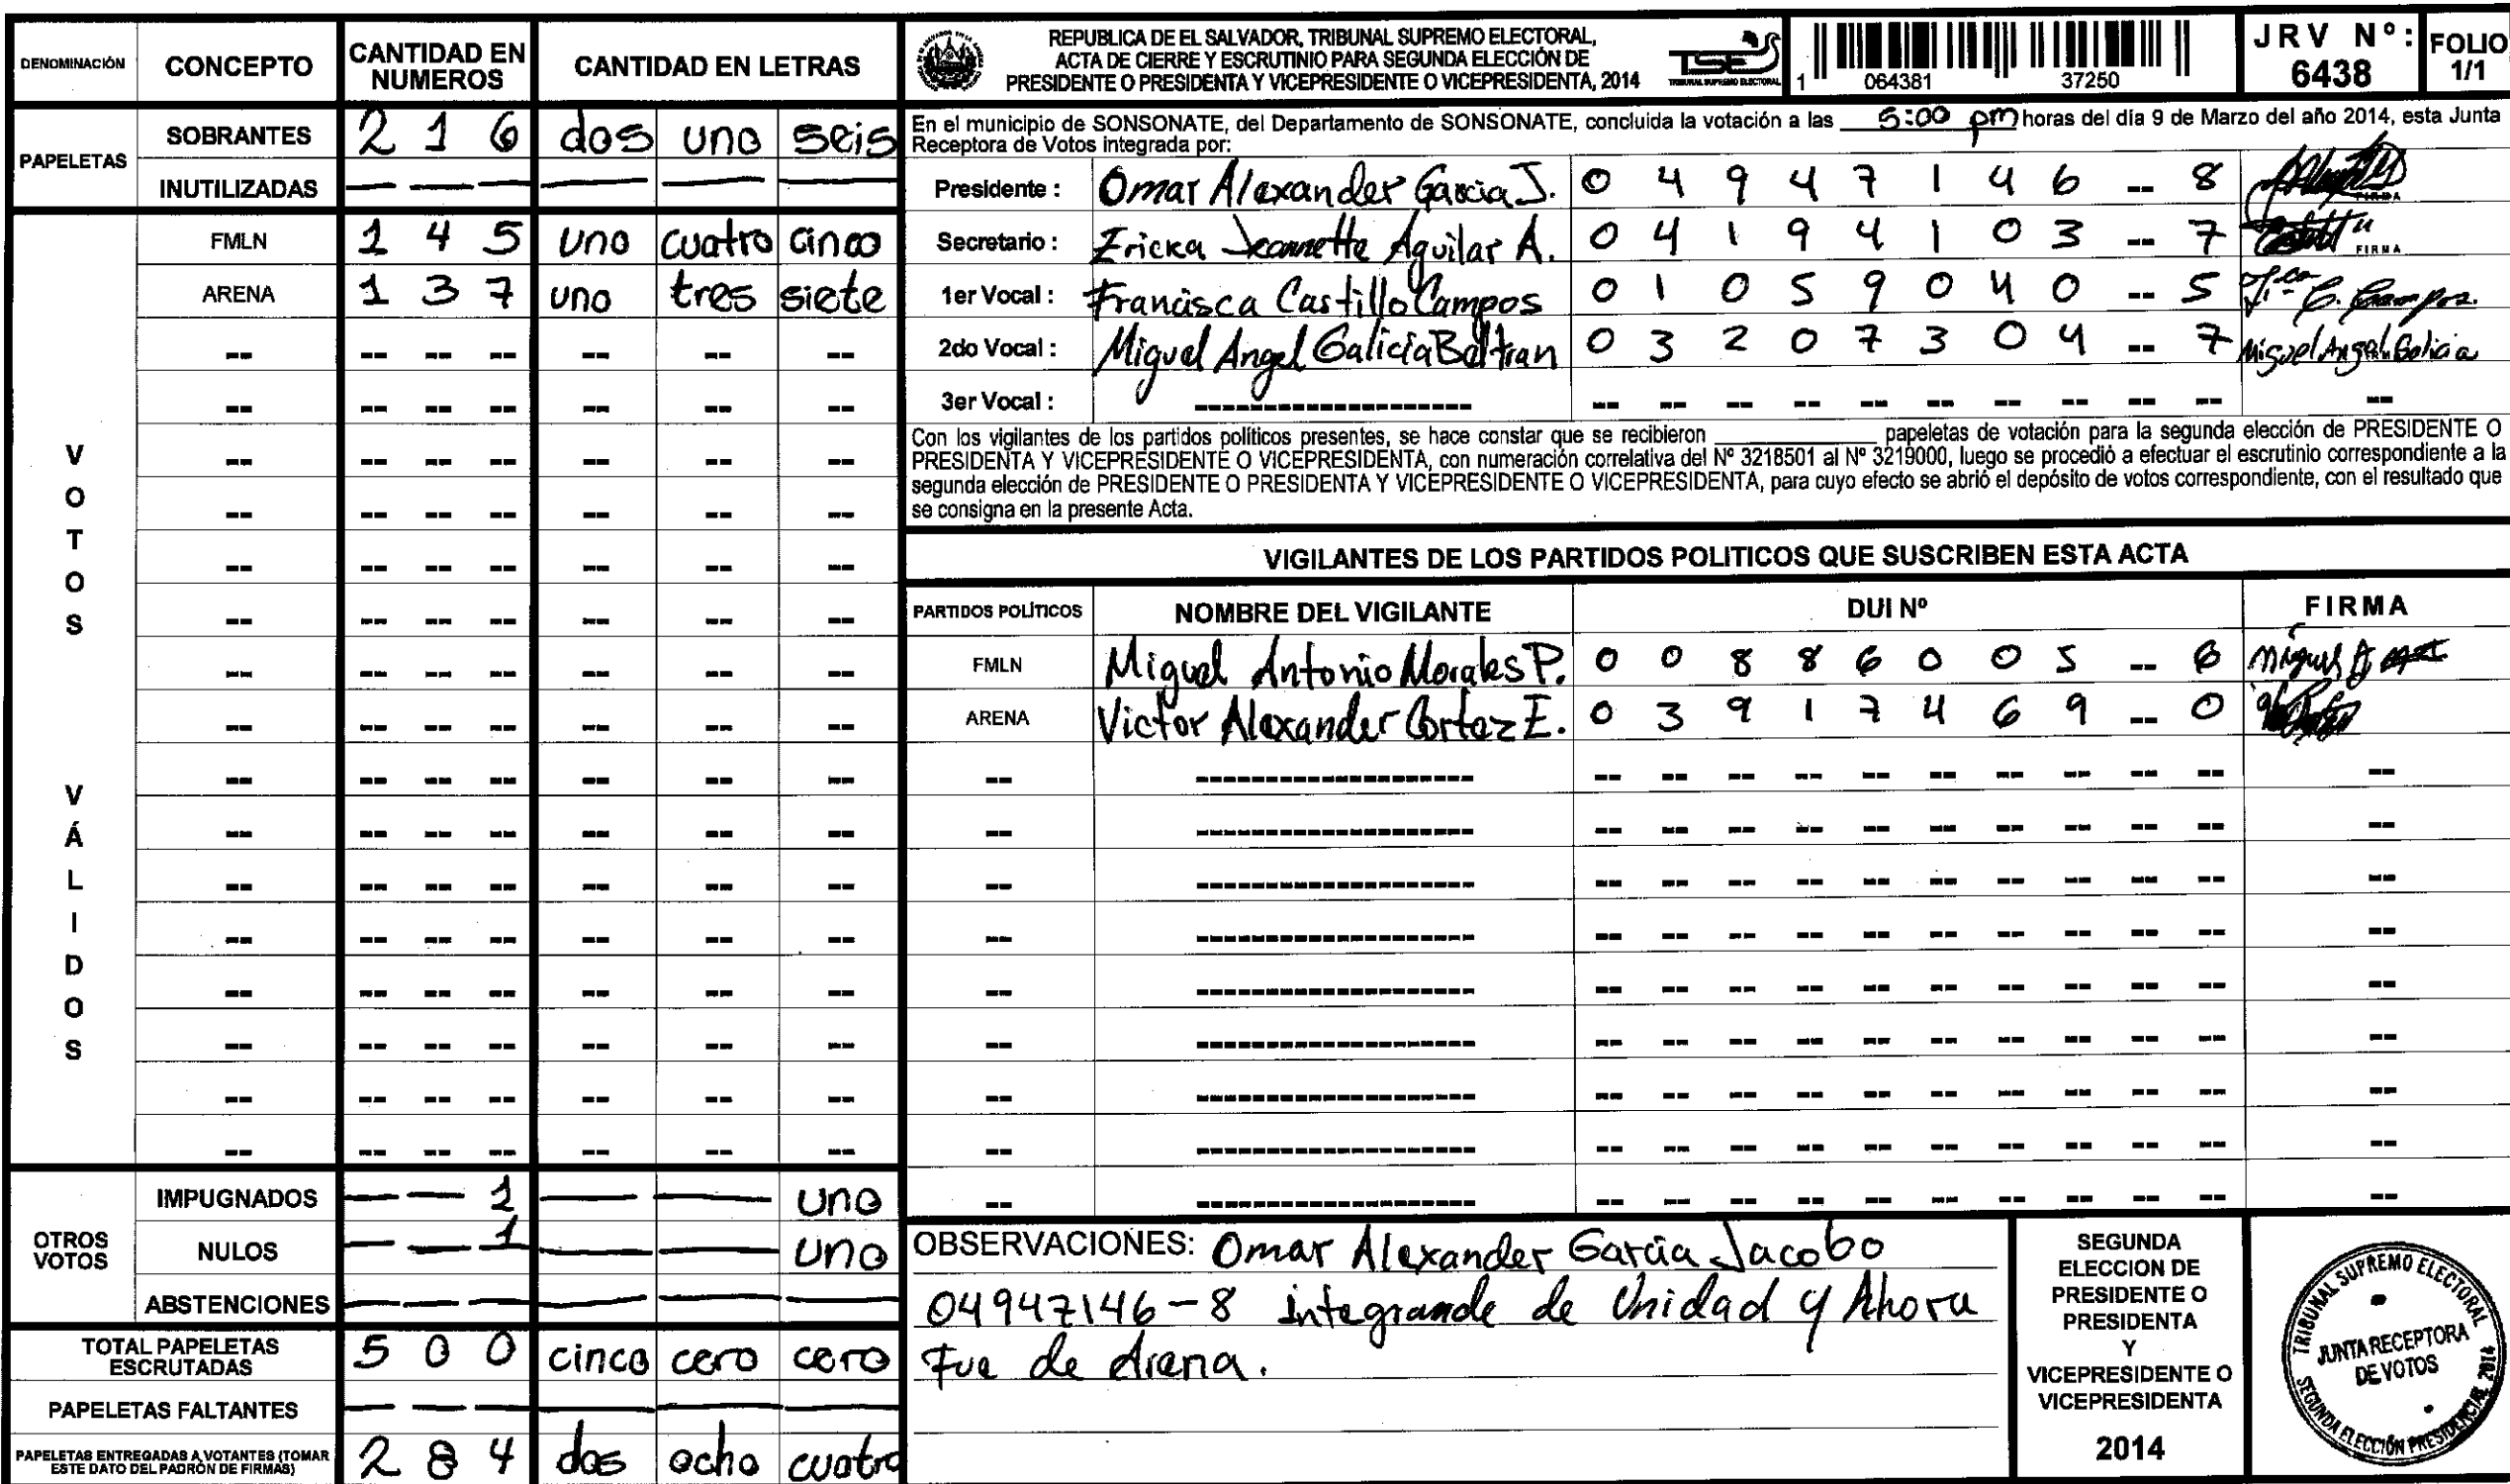 DENOMINACIÓN CONCEPTO CANTIDAD EN NUMEROS CANTIDAD EN LETRAS
PAPELETAS
SOBRANTES 2 1 6 dos uno seis
INUTILIZADAS — — — — — —
VOTOS VÁLIDOS
FMLN 1 4 5 uno cuatro cinco
ARENA 1 3 7 uno tres siete
OTROS VOTOS
IMPUGNADOS — — 1 — — uno
NULOS — — 1 — — uno
ABSTENCIONES — — — — — —
TOTAL PAPELETAS ESCRUTADAS 5 0 0 cinco cero cero
PAPELETAS FALTANTES — — — — — —
PAPELETAS ENTREGADAS A VOTANTES (TOMAR ESTE DATO DEL PADRÓN DE FIRMAS) 2 8 4 dos ocho cuatro
REPUBLICA DE EL SALVADOR, TRIBUNAL SUPREMO ELECTORAL,
ACTA DE CIERRE Y ESCRUTINIO PARA SEGUNDA ELECCIÓN DE
PRESIDENTE O PRESIDENTA Y VICEPRESIDENTE O VICEPRESIDENTA, 2014
TSE
TRIBUNAL SUPREMO ELECTORAL
1 064381 37250
JRV Nº: 6438
FOLIO 1/1
En el municipio de SONSONATE, del Departamento de SONSONATE, concluida la votación a las 5:00 pm horas del día 9 de Marzo del año 2014, esta Junta
Receptora de Votos integrada por:
Presidente : Omar Alexander Garcia J. 0 4 9 4 7 1 4 6 -- 8 FIRMA
Secretario : Ericka Jeannette Aguilar A. 0 4 1 9 4 1 0 3 -- 7 FIRMA
1er Vocal : Francisca Castillo Campos 0 1 0 5 9 0 4 0 -- 5 Fca C. Campos.
2do Vocal : Miguel Angel Galicia Beltran 0 3 2 0 7 3 0 4 -- 7 Miguel Angel Galicia
3er Vocal : -------------------- -- -- -- -- -- -- -- -- -- -- --
Con los vigilantes de los partidos políticos presentes, se hace constar que se recibieron ____________ papeletas de votación para la segunda elección de PRESIDENTE O
PRESIDENTA Y VICEPRESIDENTE O VICEPRESIDENTA, con numeración correlativa del Nº 3218501 al Nº 3219000, luego se procedió a efectuar el escrutinio correspondiente a la
segunda elección de PRESIDENTE O PRESIDENTA Y VICEPRESIDENTE O VICEPRESIDENTA, para cuyo efecto se abrió el depósito de votos correspondiente, con el resultado que
se consigna en la presente Acta.
VIGILANTES DE LOS PARTIDOS POLITICOS QUE SUSCRIBEN ESTA ACTA
PARTIDOS POLÍTICOS NOMBRE DEL VIGILANTE DUI Nº FIRMA
FMLN Miguel Antonio Morales P. 0 0 8 8 6 0 0 5 -- 6 Miguel A
ARENA Victor Alexander Cortez E. 0 3 9 1 7 4 6 9 -- 0
OBSERVACIONES: Omar Alexander Garcia Jacobo
04947146-8 integrande de Unidad y Ahora
Fue de Arena.
SEGUNDA
ELECCION DE
PRESIDENTE O
PRESIDENTA
Y
VICEPRESIDENTE O
VICEPRESIDENTA
2014
TRIBUNAL SUPREMO ELECTORAL
JUNTA RECEPTORA
DE VOTOS
SEGUNDA ELECCIÓN PRESIDENCIAL 2014